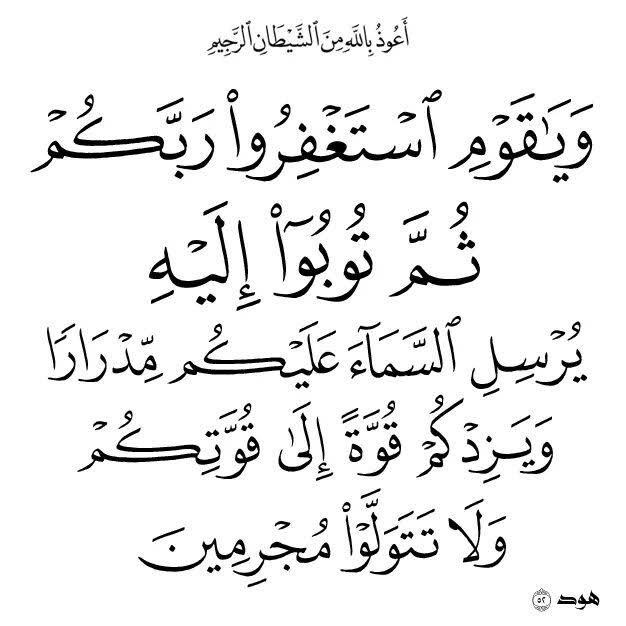 أَعُوذُ بِاللَّهِ مِنَ الشَّيْطَانِ الرَّجِيمِ
وَيَٰقَوْمِ ٱسْتَغْفِرُوا۟ رَبَّكُمْ
ثُمَّ تُوبُوٓا۟ إِلَيْهِ
يُرْسِلِ ٱلسَّمَآءَ عَلَيْكُم مِّدْرَارًا
وَيَزِدْكُمْ قُوَّةً إِلَىٰ قُوَّتِكُمْ
وَلَا تَتَوَلَّوْا۟ مُجْرِمِينَ
هود ٥٢